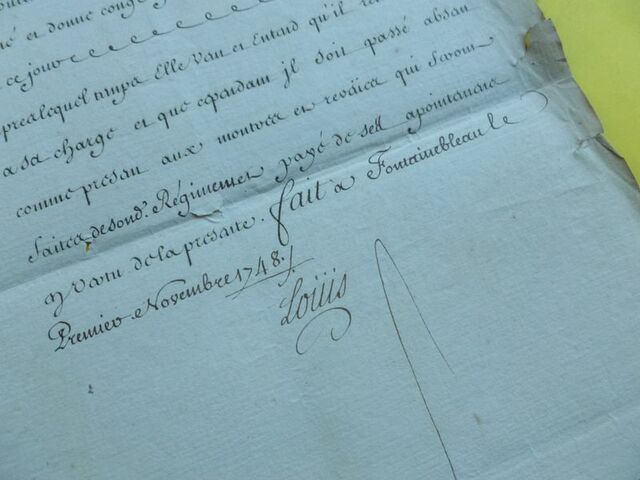 né et donne congé
ce jour
prealequel tempa Elle Van et Entard qu'il
a sa charge et que cepandam jl soit passé absan
comme presan aux montrea et reväica qui Seront
faitea de sond. Régimenet payé de sell apointamana
y Vertu de la presante. fait a Fontainebleau le
Premier Novembre 1748.
Loüis